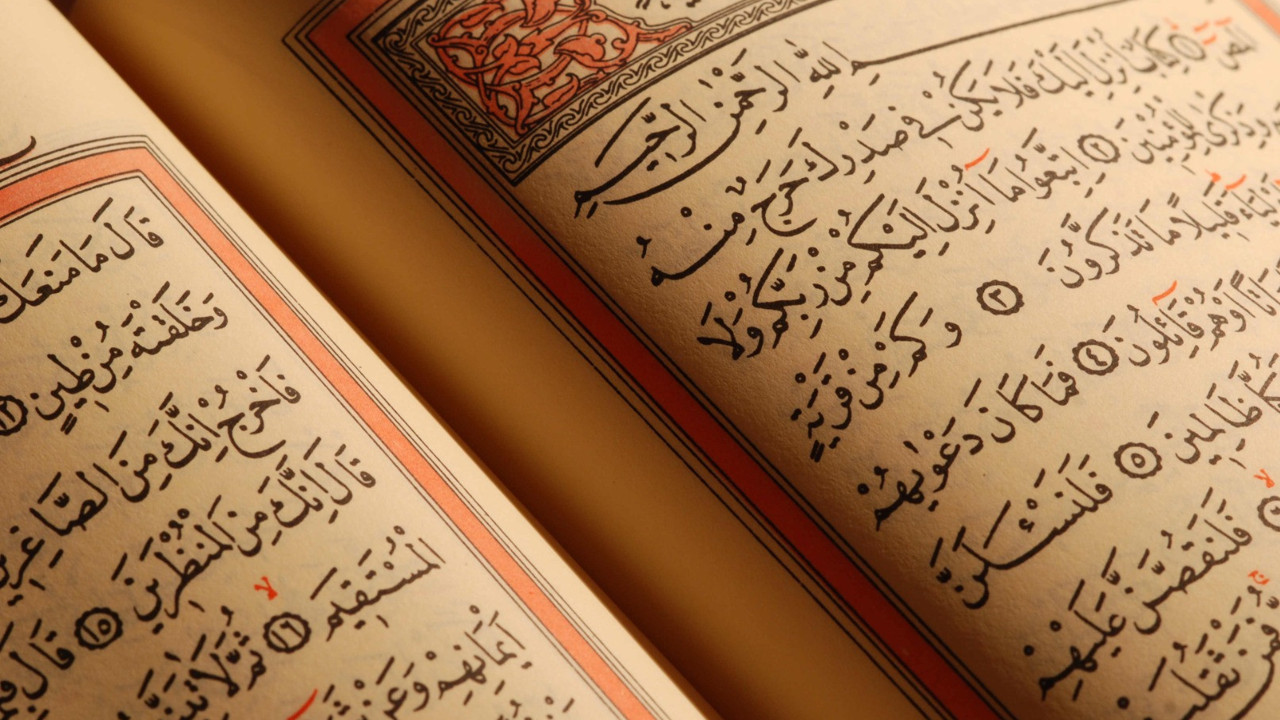 اللّٰهِ الرَّحْمٰنِ الرَّحِيمِ
الٓمٓصٓ ١ كِتَابٌ اُنْزِلَ اِلَيْكَ فَلَا يَكُنْ فِي صَدْرِكَ حَرَجٌ مِنْهُ
وَذِكْرٰى لِلْمُؤْمِنِينَ ٢ اِتَّبِعُوا مَٓا اُنْزِلَ اِلَيْكُمْ مِنْ رَبِّكُمْ وَلَا
قَلِيلًا مَا تَذَكَّرُونَ ٣ وَكَمْ مِنْ قَرْيَةٍ
اَوْ هُمْ قَٓائِلُونَ ٤ فَمَا كَانَ دَعْوٰيهُمْ
ظَالِمِينَ ٥ فَلَنَسْـَٔلَنَّ
فَلَنَقُصَّنَّ عَلَيْهِمْ
فَمَنْ ثَقُلَتْ
قَالَ مَا مَنَعَكَ
وَخَلَقْتَهُ مِنْ طِينٍ ١٢
فَاخْرُجْ اِنَّكَ مِنَ الصَّاغِرِينَ
قَالَ اِنَّكَ مِنَ الْمُنْظَرِينَ ١٥ قَالَ
الْمُسْتَقِيمَ ١٦ ثُمَّ
اَيْمَانِهِمْ وَعَنْ